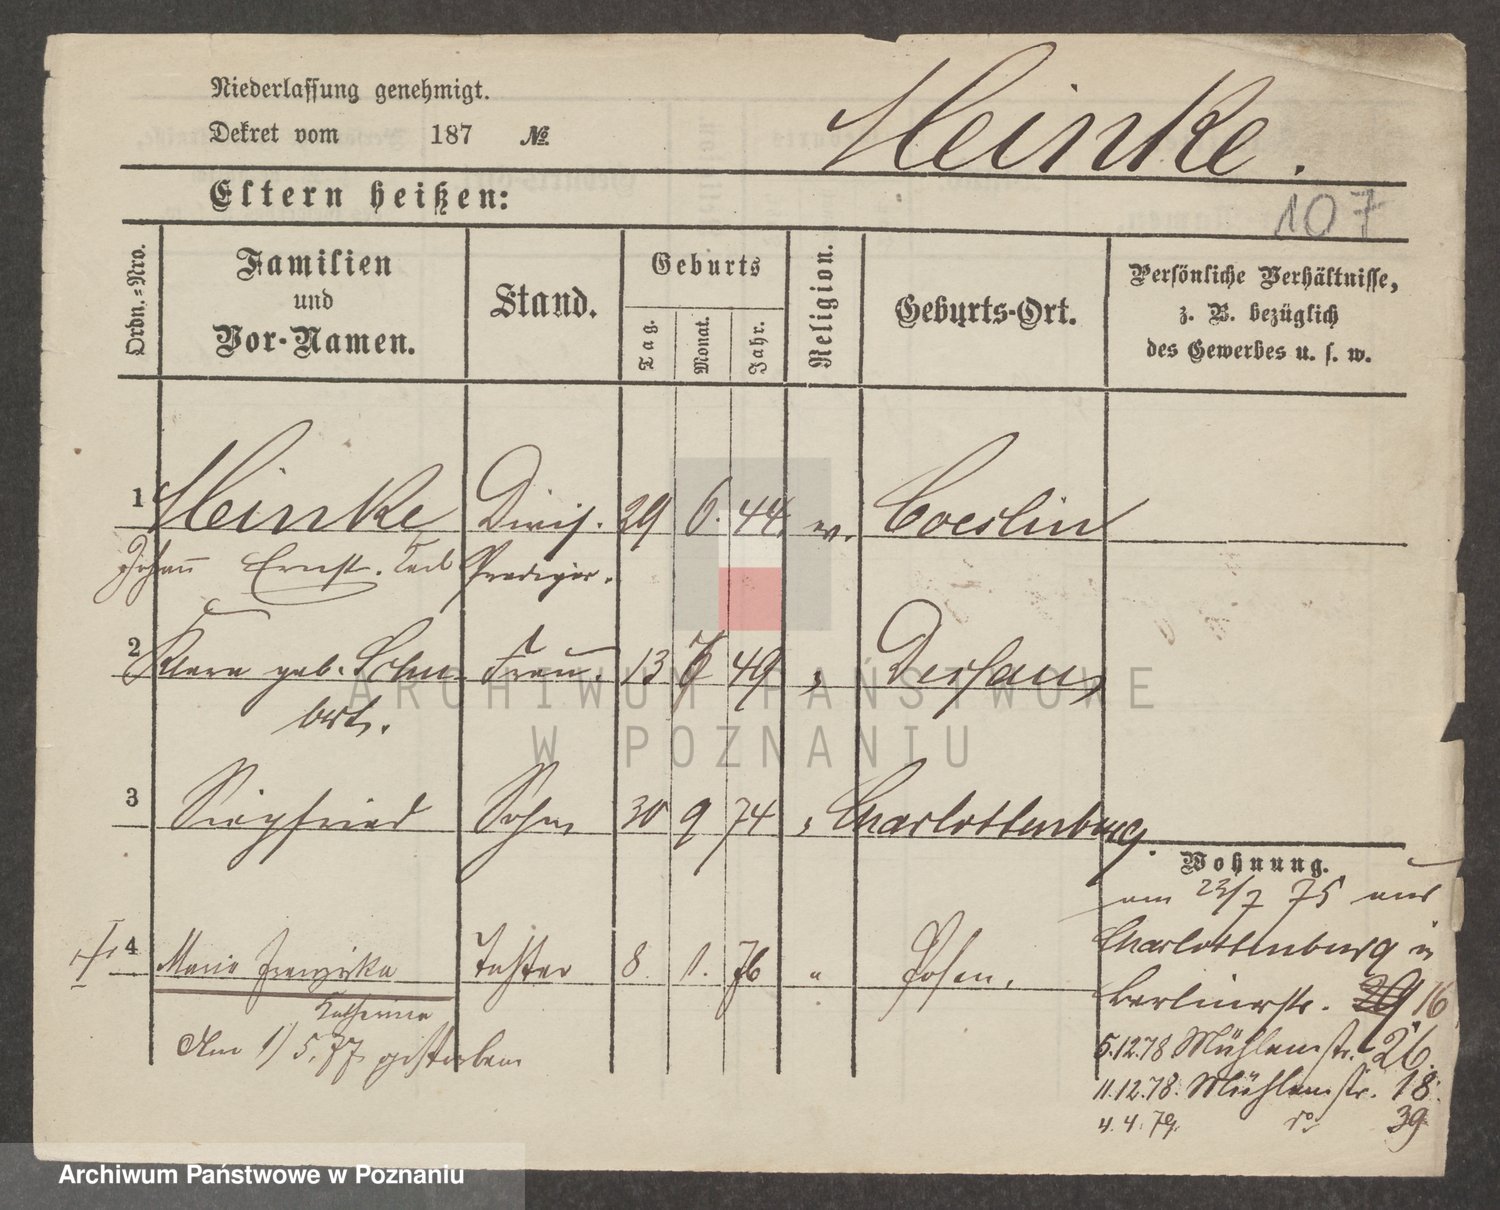 Niederlassung genehmigt.
Dekret vom 187 №
Heinke.
107
Eltern heißen:
Ordn.=Nro.
Familien
und
Vor-Namen.
Stand.
Geburts
Tag.
Monat.
Jahr.
Religion.
Geburts-Ort.
Persönliche Verhältnisse,
z. B. bezüglich
des Gewerbes u. s. w.
1 Heinke Divis. 29 6. 44. ev. Coeslin
Johann Ernst Prediger.
2 Klara geb. Schu- Frau. 13 49 " Dessau
bert.
3 Siegfried Sohn 30 9 74 " Charlottenburg.
Wohnung.
am 23/7 75 aus
Charlottenburg in
Berlinerstr. 29 16
4 Marie Franziska Tochter 8. 1. 76 " Posen.
Katherina
Am 1/5. 77 gestorben
5.12.78 Mühlenstr. 26.
11.12.78. Mühlenstr. 18.
4.4.79. do 39
ARCHIWUM PAŃSTWOWE
W POZNANIU
Archiwum Państwowe w Poznaniu